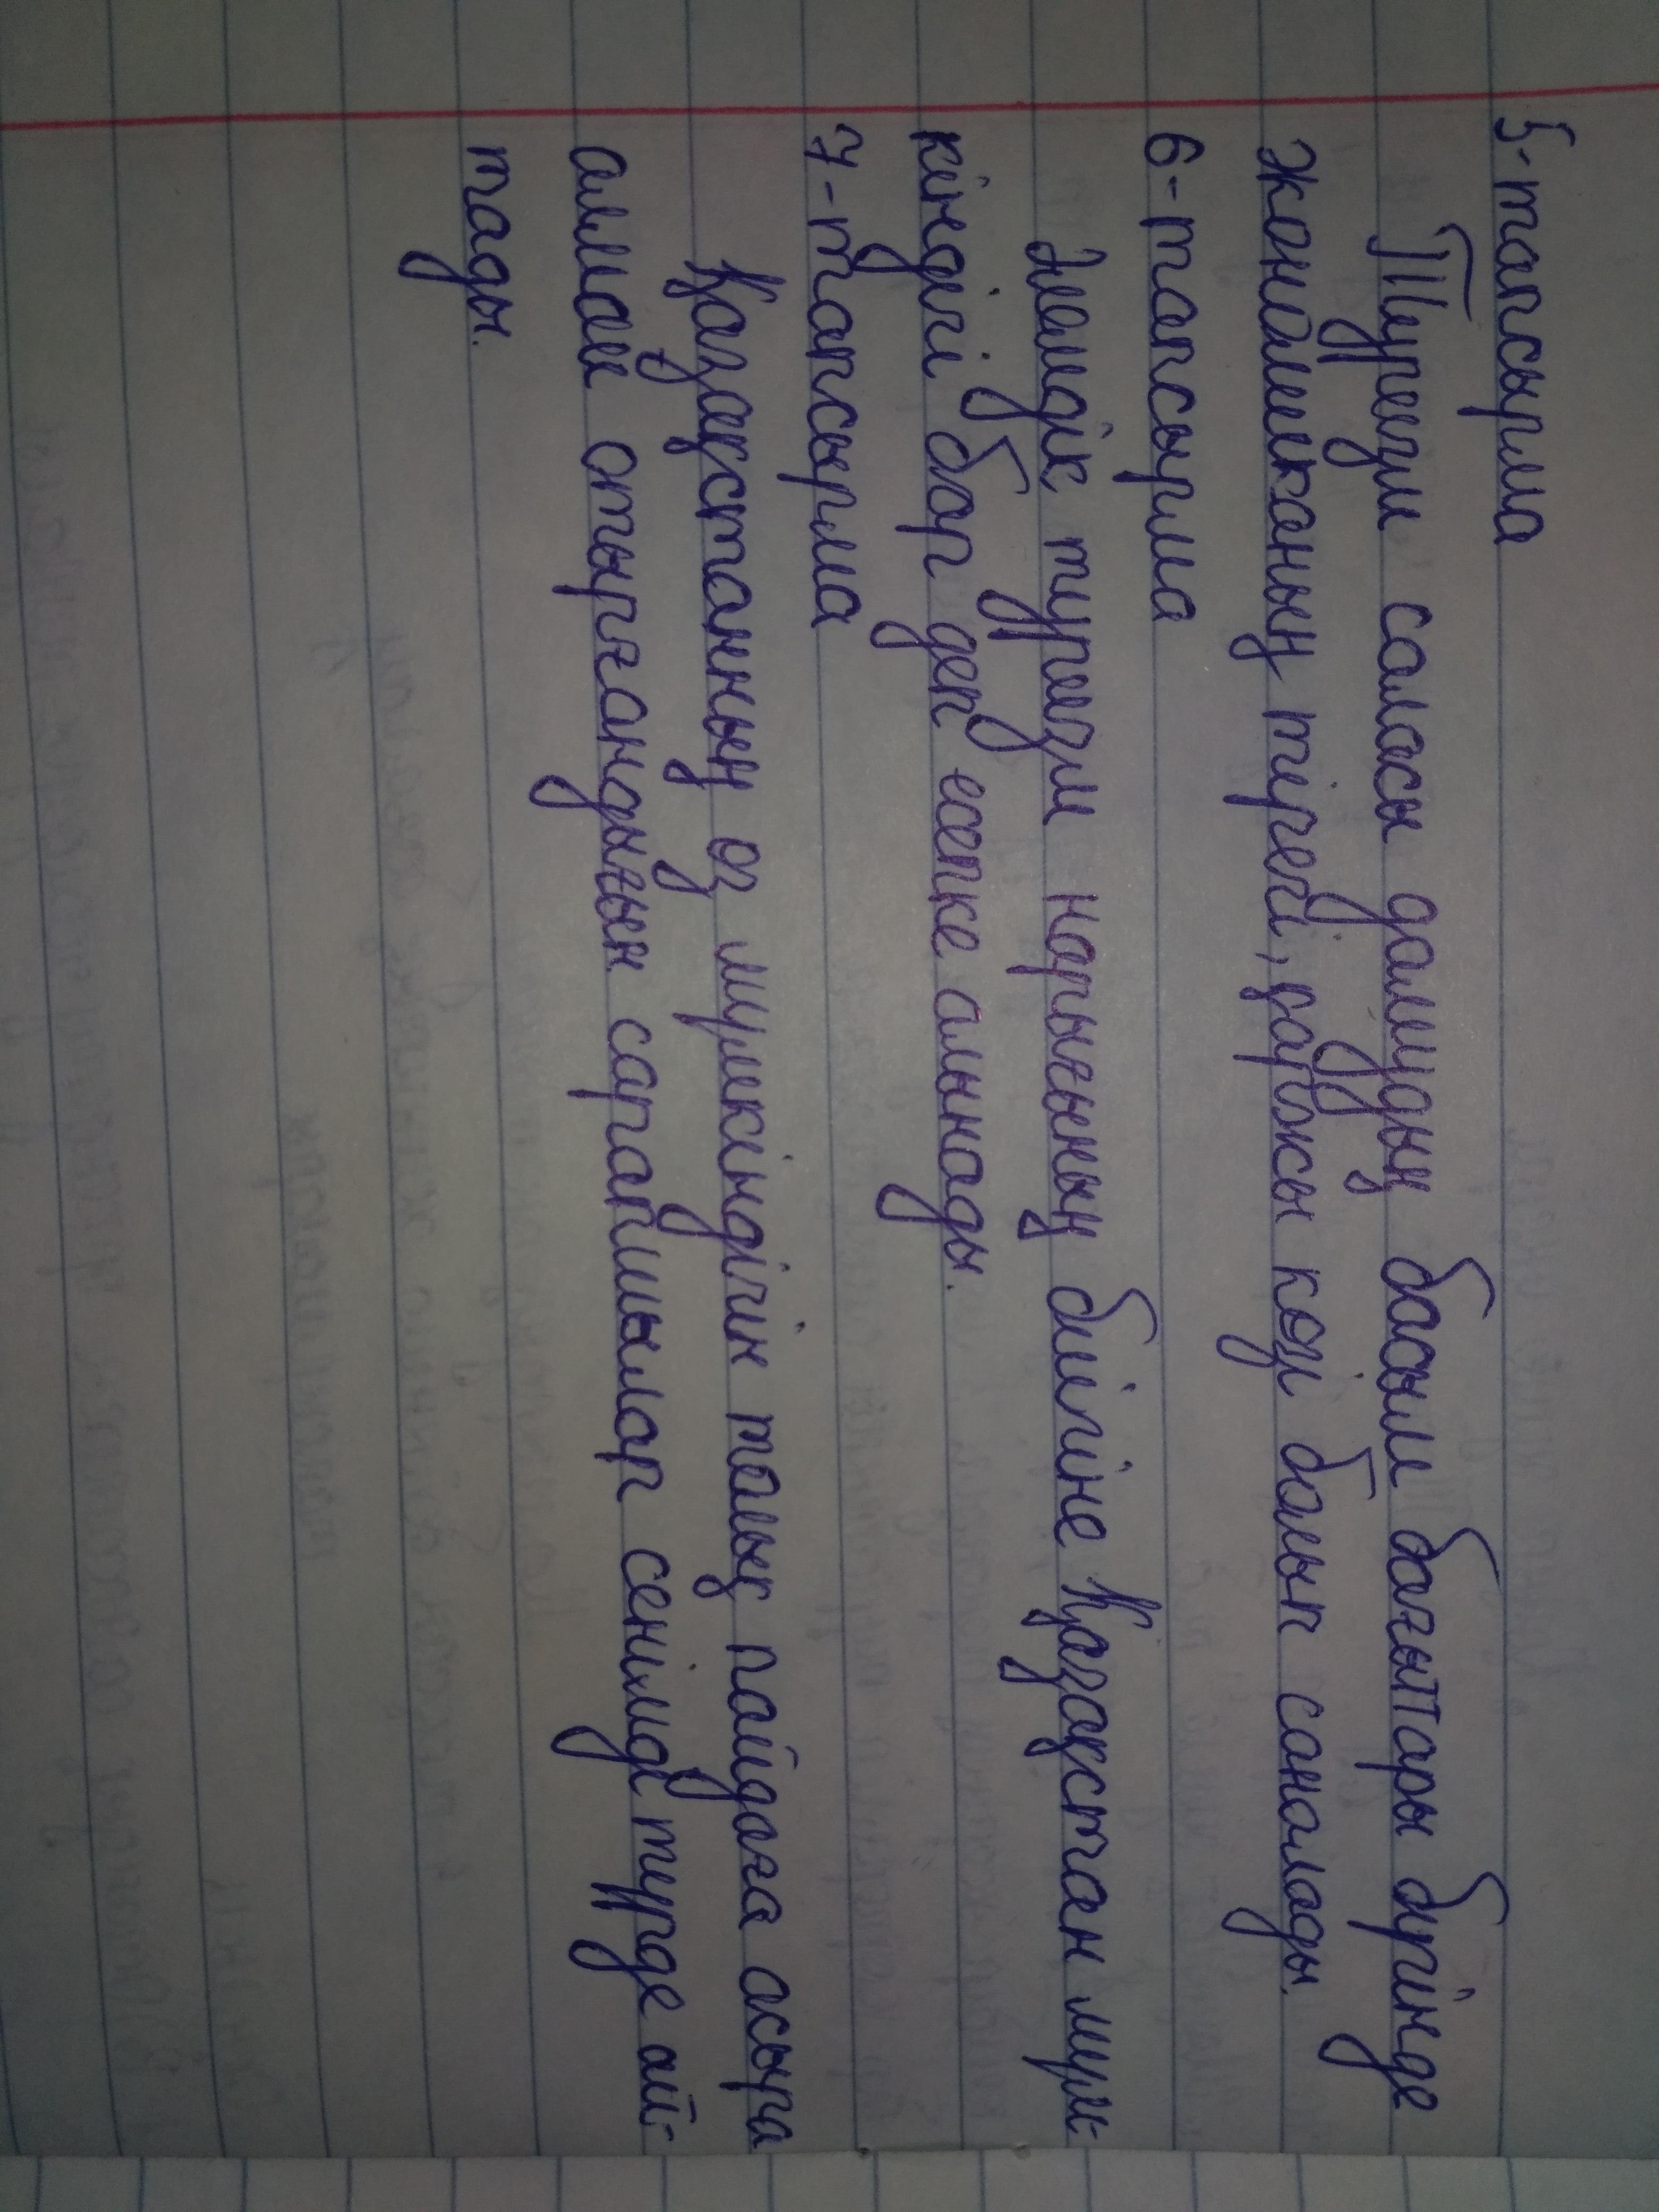 5-тапсырма
Туризм саласы дамудың басым бағыттары бүгінде
экономиканың тірегі, қаржы көзі болып саналады.
6-тапсырма
Әлемдік туризм нарығының білігіне Қазақстан мүм-
кіндігі бар деп есепке алынады.
7-тапсырма
Қазақстанның өз мүмкіндігін толық пайдаға асыра
алмай отырғандығын сарапшылар сенімді түрде ай-
тады.